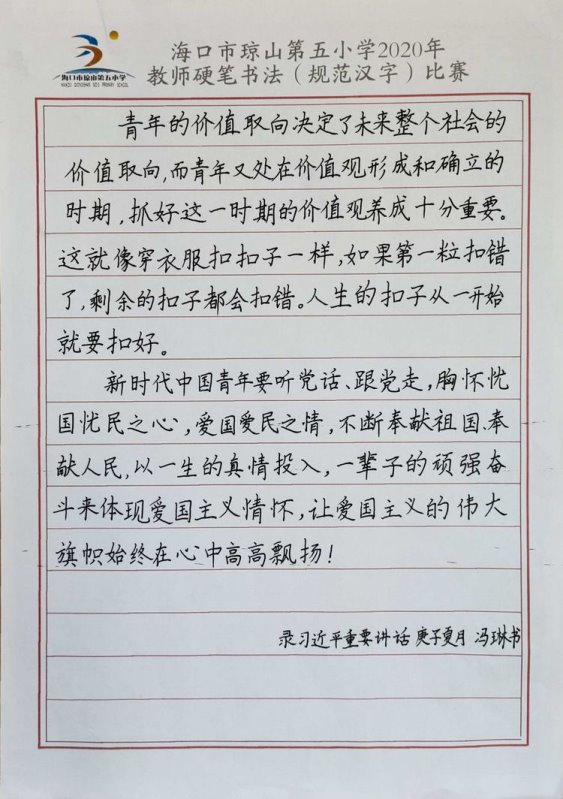 海口市琼山第五小学
海口市琼山第五小学2020年
教师硬笔书法（规范汉字）比赛
青年的价值取向决定了未来整个社会的
价值取向,而青年又处在价值观形成和确立的
时期,抓好这一时期的价值观养成十分重要。
这就像穿衣服扣扣子一样,如果第一粒扣错
了,剩余的扣子都会扣错。人生的扣子从一开始
就要扣好。
新时代中国青年要听党话、跟党走,胸怀忧
国忧民之心,爱国爱民之情,不断奉献祖国、奉
献人民,以一生的真情投入,一辈子的顽强奋
斗来体现爱国主义情怀,让爱国主义的伟大
旗帜始终在心中高高飘扬!
录习近平重要讲话 庚子夏月 冯琳书